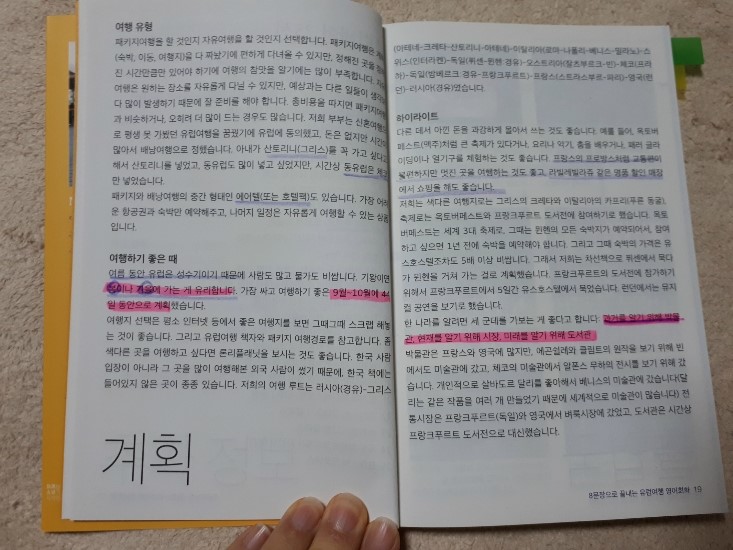 여행 유형
패키지여행을 할 것인지 자유여행을 할 것인지 선택합니다. 패키지여행은 계획
(숙박, 이동, 여행지)을 다 짜놨기에 편하게 다녀올 수 있지만, 정해진 곳을 정해
진 시간만큼만 있어야 하기에 여행의 참맛을 알기에는 많이 부족합니다.
여행은 원하는 장소를 자유롭게 다닐 수 있지만, 예상과는 다른 일들이 생각보
다 많이 발생하기 때문에 잘 준비를 해야 합니다. 총비용을 따지면 패키지여행
과 비슷하거나, 오히려 더 많이 드는 경우도 많습니다. 저희 부부는 신혼여행으
로 평생 못 가봤던 유럽여행을 꿈꿨기에 유럽에 동의했고, 돈은 없지만 시간이
많아서 배낭여행으로 정했습니다. 아내가 산토리니(그리스)를 꼭 가고 싶다고
해서 산토리니를 넣었고, 동유럽도 많이 넣고 싶었지만, 시간상 동유럽은 체코
만 넣었습니다.
패키지와 배낭여행의 중간 형태인 에어텔(또는 호텔팩)도 있습니다. 가장 어려
운 항공권과 숙박만 예약해주고, 나머지 일정은 자유롭게 여행할 수 있는 상품
입니다.
여행하기 좋은 때
여름 동안 유럽은 성수기이기 때문에 사람도 많고 물가도 비쌉니다. 기왕이면
봄이나 겨울에 가는 게 유리합니다. 가장 싸고 여행하기 좋은 9월~10월에 44
일 동안으로 계획했습니다.
여행지 선택은 평소 인터넷 등에서 좋은 여행지를 보면 그때그때 스크랩 해놓
는 것이 좋습니다. 그리고 유럽여행 책자와 패키지 여행경로를 참고합니다. 좀
색다른 곳을 여행하고 싶다면 론리플래닛을 보시는 것도 좋습니다. 한국 사람
입장이 아니라 그 곳을 많이 여행해본 외국 사람이 썼기 때문에, 한국 책에는
들어있지 않은 곳이 종종 있습니다. 저희의 여행 루트는 러시아(경유)-그리스
계획
(아테네-크레타-산토리니-아테네)-이탈리아(로마-나폴리-베니스-밀라노)-스
위스(인터라켄)-독일(퓌센-뮌헨 경유)-오스트리아(잘츠부르크-빈)-체코(프라
하)-독일(밤베르크 경유-프랑크푸르트)-프랑스(스트라스부르-파리)-영국(런
던)-러시아(경유)였습니다.
하이라이트
다른 데서 아낀 돈을 과감하게 몰아서 쓰는 것도 좋습니다. 예를 들어, 옥토버
페스트(맥주)처럼 큰 축제가 있다거나, 요리나 악기, 춤을 배우거나, 패러 글라
이딩이나 열기구를 체험하는 것도 좋습니다. 프랑스의 프로방스처럼 교통편이
불편하지만 멋진 곳을 여행하는 것도 좋고, 라빌레빌라쥬 같은 명품 할인 매장
에서 쇼핑을 해도 좋습니다.
저희는 색다른 여행지로는 그리스의 크레타와 이탈리아의 카프리(푸른 동굴),
축제로는 옥토버페스트와 프랑크푸르트 도서전에 참여하기로 했습니다. 옥토
버페스트는 세계 3대 축제로, 그때는 뮌헨의 모든 숙박지가 예약되어서, 참여
하고 싶으면 1년 전에 숙박을 예약해야 합니다. 그리고 그때 숙박의 가격은 유
스호스텔조차도 5배 이상 비쌉니다. 그래서 저희는 차선책으로 퓌센에서 묵다
가 뮌헨을 거쳐 가는 걸로 계획했습니다. 프랑크푸르트의 도서전에 참가하기
위해서 프랑크푸르트에서 5일간 유스호스텔에서 묵었습니다. 런던에서는 뮤지
컬 공연을 보기로 했습니다.
한 나라를 알려면 세 군데를 가보는 게 좋다고 합니다: 과거를 알기 위해 박물
관, 현재를 알기 위해 시장, 미래를 알기 위해 도서관
박물관은 프랑스와 영국에 많지만, 에곤쉴레와 클림트의 원작을 보기 위해 빈
에서도 미술관에 갔고, 체코의 미술관에서 알폰스 무하의 전시를 보기 위해 갔
습니다. 개인적으로 살바도르 달리를 좋아해서 베니스의 미술관에 갔습니다(달
리는 같은 작품을 여러 개 만들었기 때문에 세계적으로 미술관이 많습니다) 전
통시장은 프랑크푸르트(독일)와 영국에서 벼룩시장에 갔었고, 도서관은 시간상
프랑크푸르트 도서전으로 대신했습니다.
8문장으로 끝내는 유럽여행 영어회화